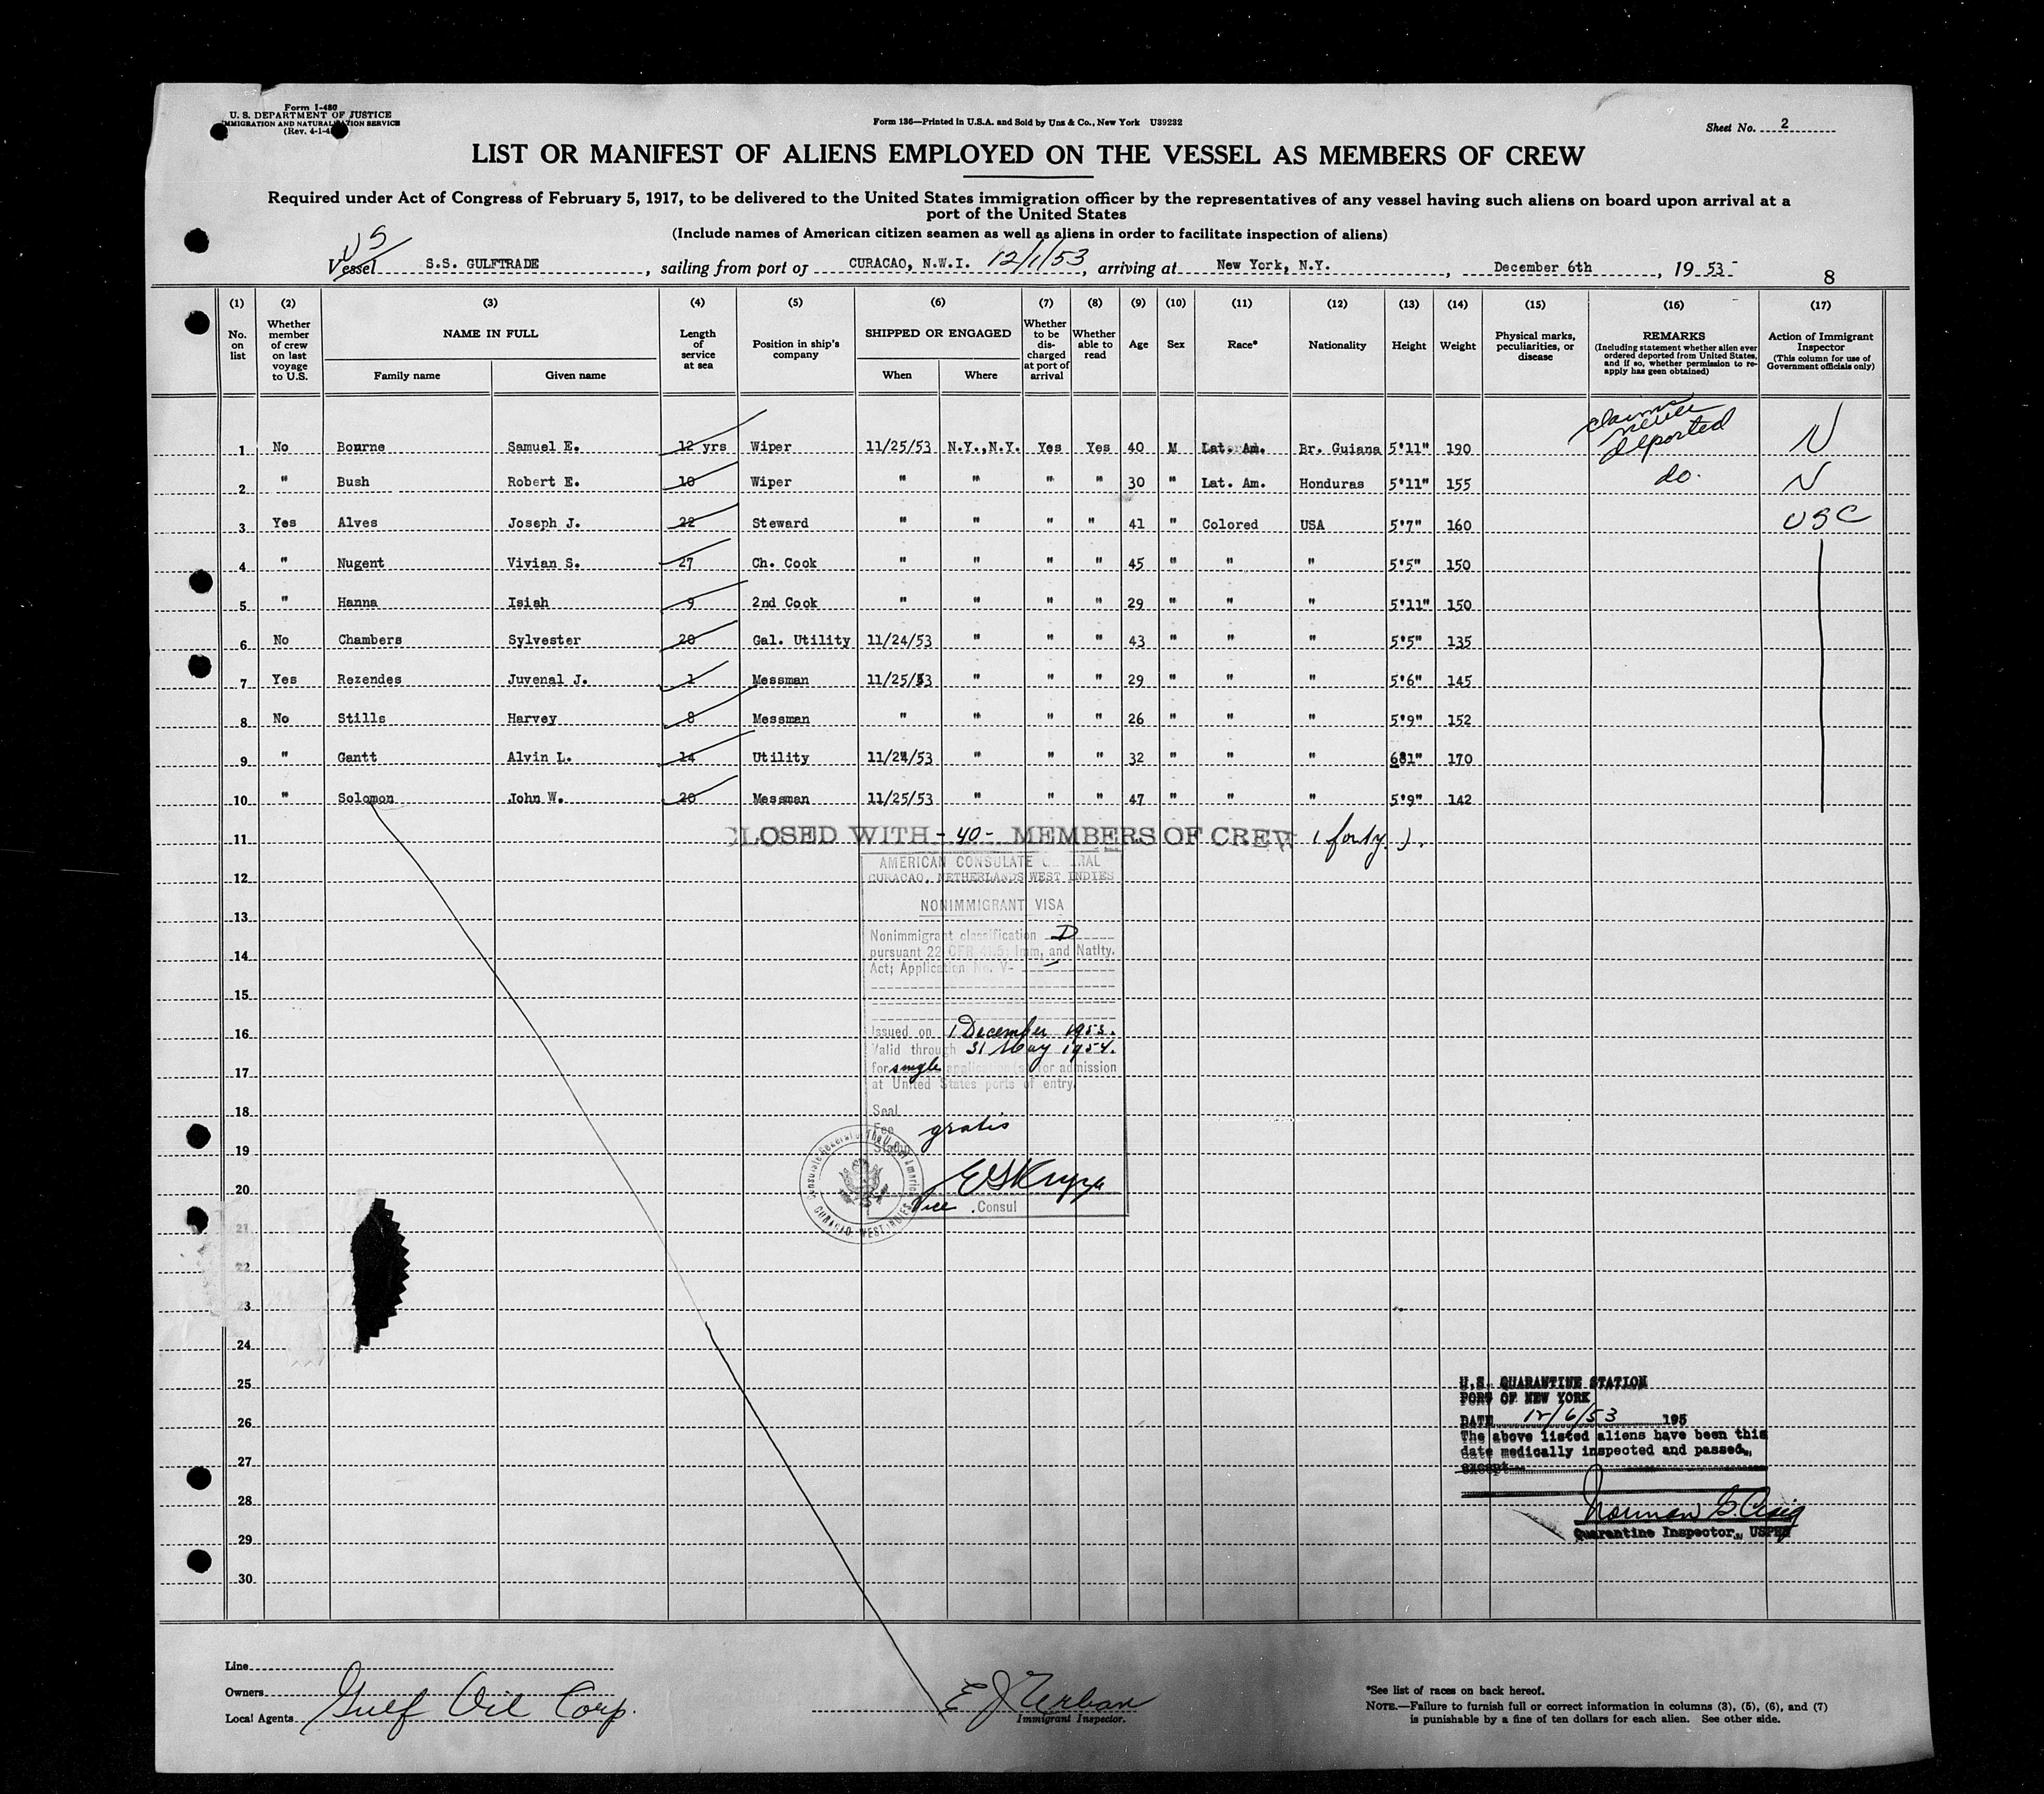 Form I-480
U. S. DEPARTMENT OF JUSTICE
IMMIGRATION AND NATURALIZATION SERVICE
(Rev. 4-1-4
Form 136—Printed in U.S.A. and Sold by Unz & Co., New York U39232
Sheet No. 2
LIST OR MANIFEST OF ALIENS EMPLOYED ON THE VESSEL AS MEMBERS OF CREW
Required under Act of Congress of February 5, 1917, to be delivered to the United States immigration officer by the representatives of any vessel having such aliens on board upon arrival at a
port of the United States
(Include names of American citizen seamen as well as aliens in order to facilitate inspection of aliens)
US
Vessel S.S. GULFTRADE, sailing from port of CURACAO, N.W.I. 12/1/53, arriving at New York, N.Y., December 6th, 1953
8
(1) (2) (3) (4) (5) (6) (7) (8) (9) (10) (11) (12) (13) (14) (15) (16) (17)
No. on list
Whether member of crew on last voyage to U.S.
NAME IN FULL
Family name
Given name
Length of service at sea
Position in ship's company
SHIPPED OR ENGAGED
When
Where
Whether to be discharged at port of arrival
Whether able to read
Age
Sex
Race*
Nationality
Height
Weight
Physical marks, peculiarities, or disease
REMARKS
(Including statement whether alien ever ordered deported from United States, and if so, whether permission to re-apply has geen obtained)
Action of Immigrant Inspector
(This column for use of Government officials only)
claims never deported
1 No Bourne Samuel E. 12 yrs Wiper 11/25/53 N.Y.,N.Y. Yes Yes 40 M Lat. Am. Br. Guiana 5'11" 190 N
2 " Bush Robert E. 10 Wiper " " " " 30 " Lat. Am. Honduras 5'11" 155 do. N
3 Yes Alves Joseph J. 22 Steward " " " " 41 " Colored USA 5'7" 160 USC
4 " Nugent Vivian S. 27 Ch. Cook " " " " 45 " " " 5'5" 150
5 " Hanna Isiah 9 2nd Cook " " " " 29 " " " 5'11" 150
6 No Chambers Sylvester 20 Gal. Utility 11/24/53 " " " 43 " " " 5'5" 135
7 Yes Rezendes Juvenal J. 1 Messman 11/25/53 " " " 29 " " " 5'6" 145
8 No Stills Harvey 8 Messman " " " " 26 " " " 5'9" 152
9 " Gantt Alvin L. 14 Utility 11/24/53 " " " 32 " " " 6'1" 170
10 " Solomon John W. 20 Messman 11/25/53 " " " 47 " " " 5'9" 142
11 CLOSED WITH -40- MEMBERS OF CREW (forty).
AMERICAN CONSULATE
12 CURACAO, NETHERLANDS WEST INDIES
13 NONIMMIGRANT VISA
Nonimmigrant classification D
14 pursuant 22 CFR 41.5; Imm. and Natlty.
Act; Application No. V-
15
16 Issued on 1 December 1953.
Valid through 31 May 1954.
17 for single application(s) for admission
at United States ports of entry.
18 Seal
Fee gratis
19 Stamp
20 Vice Consul
Consulate General of The U. S. of America
CURACAO WEST INDIES
21
22
23
24
25 U.S. QUARANTINE STATION
PORT OF NEW YORK
26 DATE 12/6/53 195
The above listed aliens have been this
27 date medically inspected and passed,
except
28 Norman G. Craig
29 Quarantine Inspector, USPHS
30
Line
Owners
Local Agents Gulf Oil Corp.
E J Urban
Immigrant Inspector.
*See list of races on back hereof.
NOTE.—Failure to furnish full or correct information in columns (3), (5), (6), and (7)
is punishable by a fine of ten dollars for each alien. See other side.